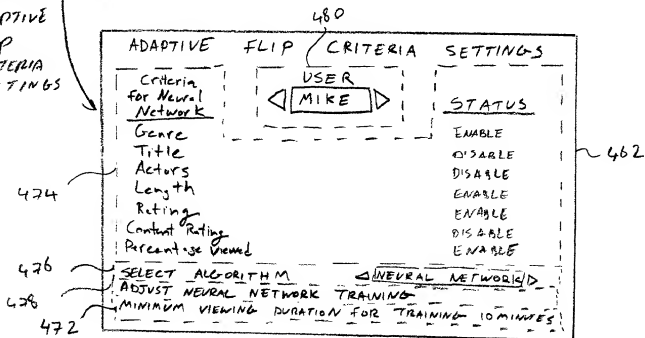 480
ADAPTIVE FLIP CRITERIA SETTINGS
PTIVE
P
TERIA
TINGS
Criteria
for Neural
Network
USER
MIKE
STATUS
Genre ENABLE
Title DISABLE
Actors DISABLE
Length ENABLE
Rating ENABLE
Content Rating DISABLE
Percentage viewed ENABLE
462
474
476
SELECT ALGORITHM NEURAL NETWORK
478
ADJUST NEURAL NETWORK TRAINING
472
MINIMUM VIEWING DURATION FOR TRAINING 10 MINUTES